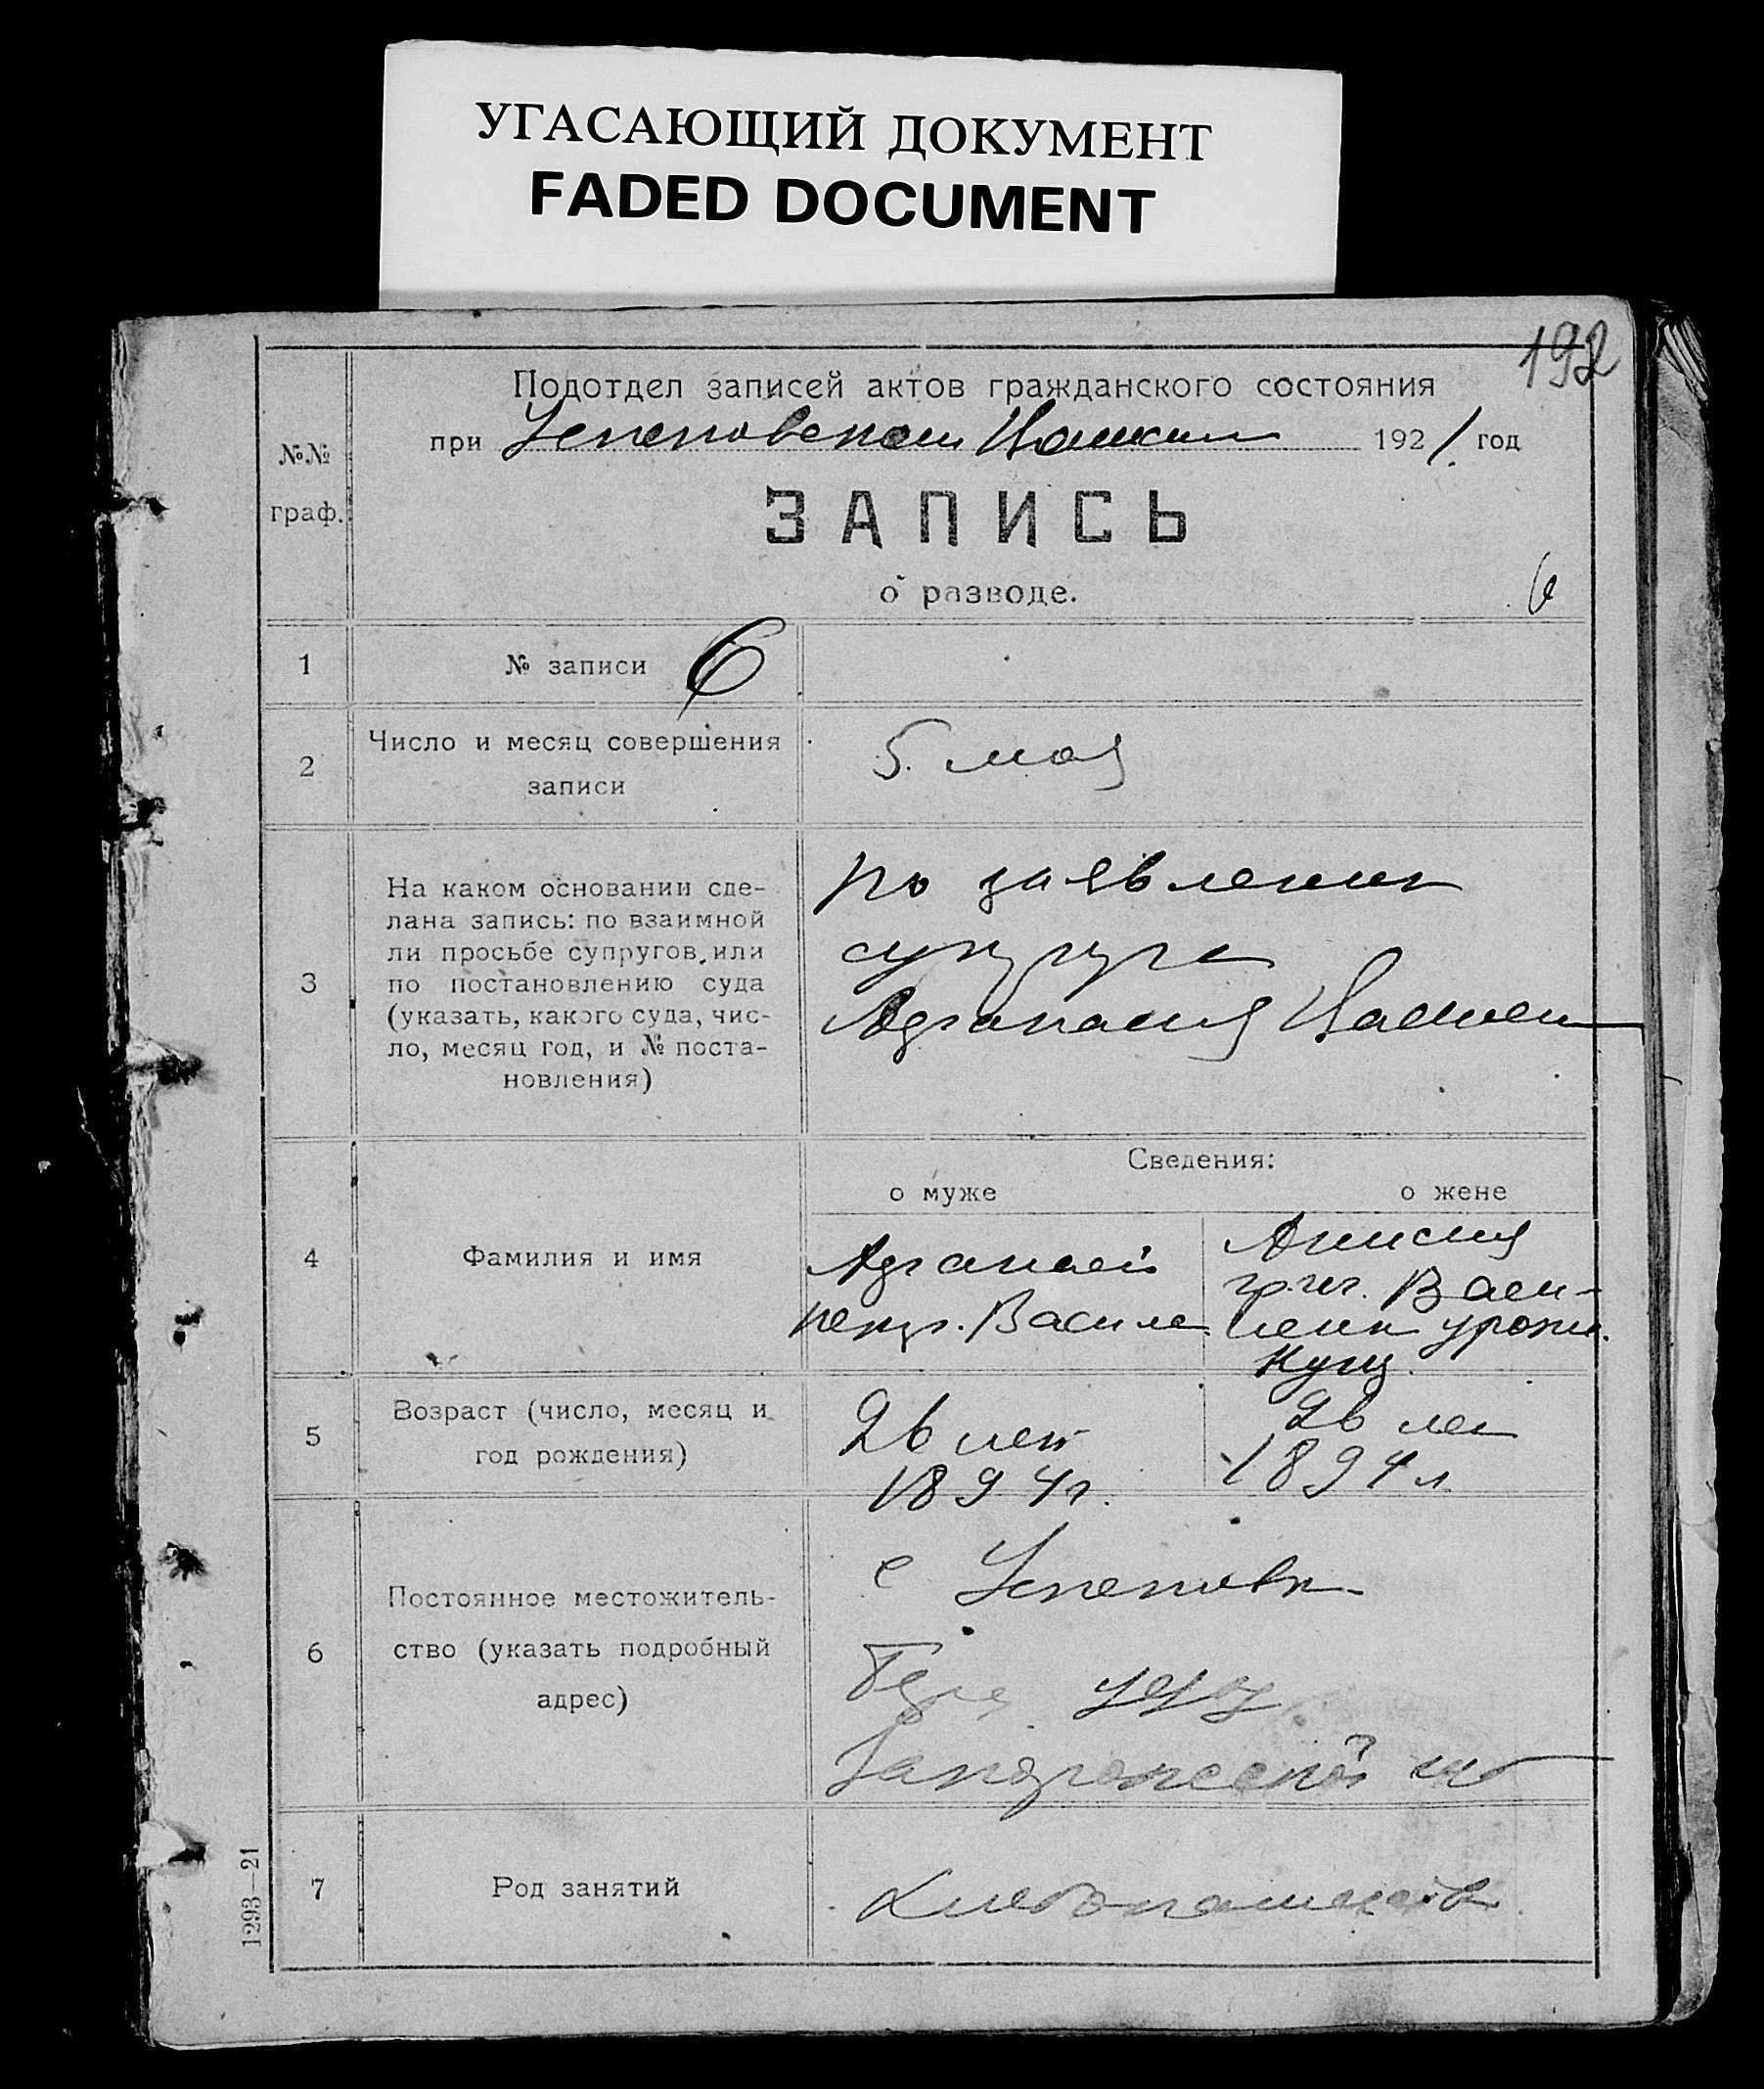 УГАСАЮЩИЙ ДОКУМЕНТ
FADED DOCUMENT
192
Подотдел записей актов гражданского состояния
при 1921. год
№№
граф.
ЗАПИСЬ
о разводе.
6
1
№ записи 6
2
Число и месяц совершения
записи
5. мая
3
На каком основании сде-
лана запись: по взаимной
ли просьбе супругов, или
по постановлению суда
(указать, какого суда, чис-
ло, месяц год, и № поста-
новления)
по заявлению
супруга
Афанасия
Сведения:
о муже
о жене
4
Фамилия и имя
Афанасий
Василе
Анисия
григ. Васи-
ленк урожд.
Кущ.
5
Возраст (число, месяц и
год рождения)
26 лет
1894г.
26 лет
1894
6
Постоянное местожитель-
ство (указать подробный
адрес)
с
Запорожской
7
Род занятий
хлебопашество
1293—21